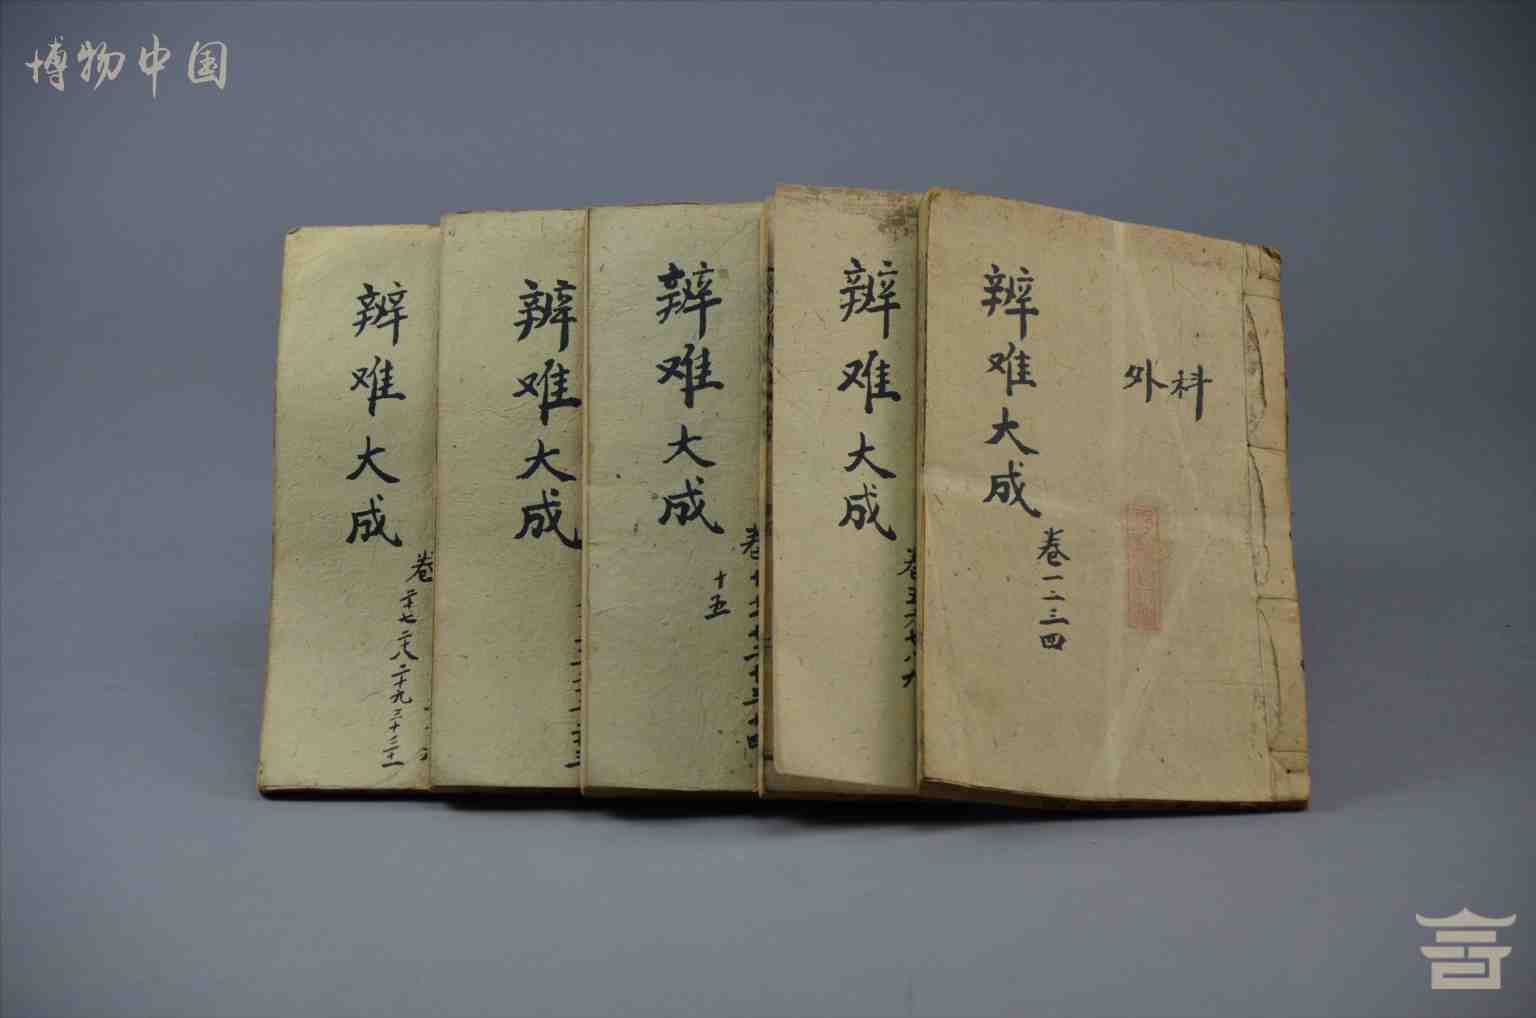 博物中国
外科
辨难大成
卷一二三四
辨难大成
卷五六七八九
辨难大成
卷十十一十二十三十四
十五
辨难大成
辨难大成
卷
二十七二十八二十九三十三十一